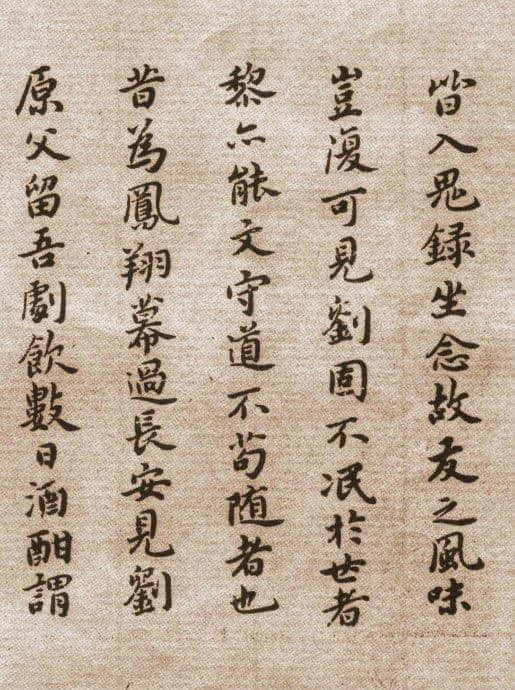 皆入鬼録坐念故友之風味
豈復可見劉固不泯於世者
黎亦能文守道不苟随者也
昔為鳳翔幕過長安見劉
原父留吾劇飲數日酒酣謂